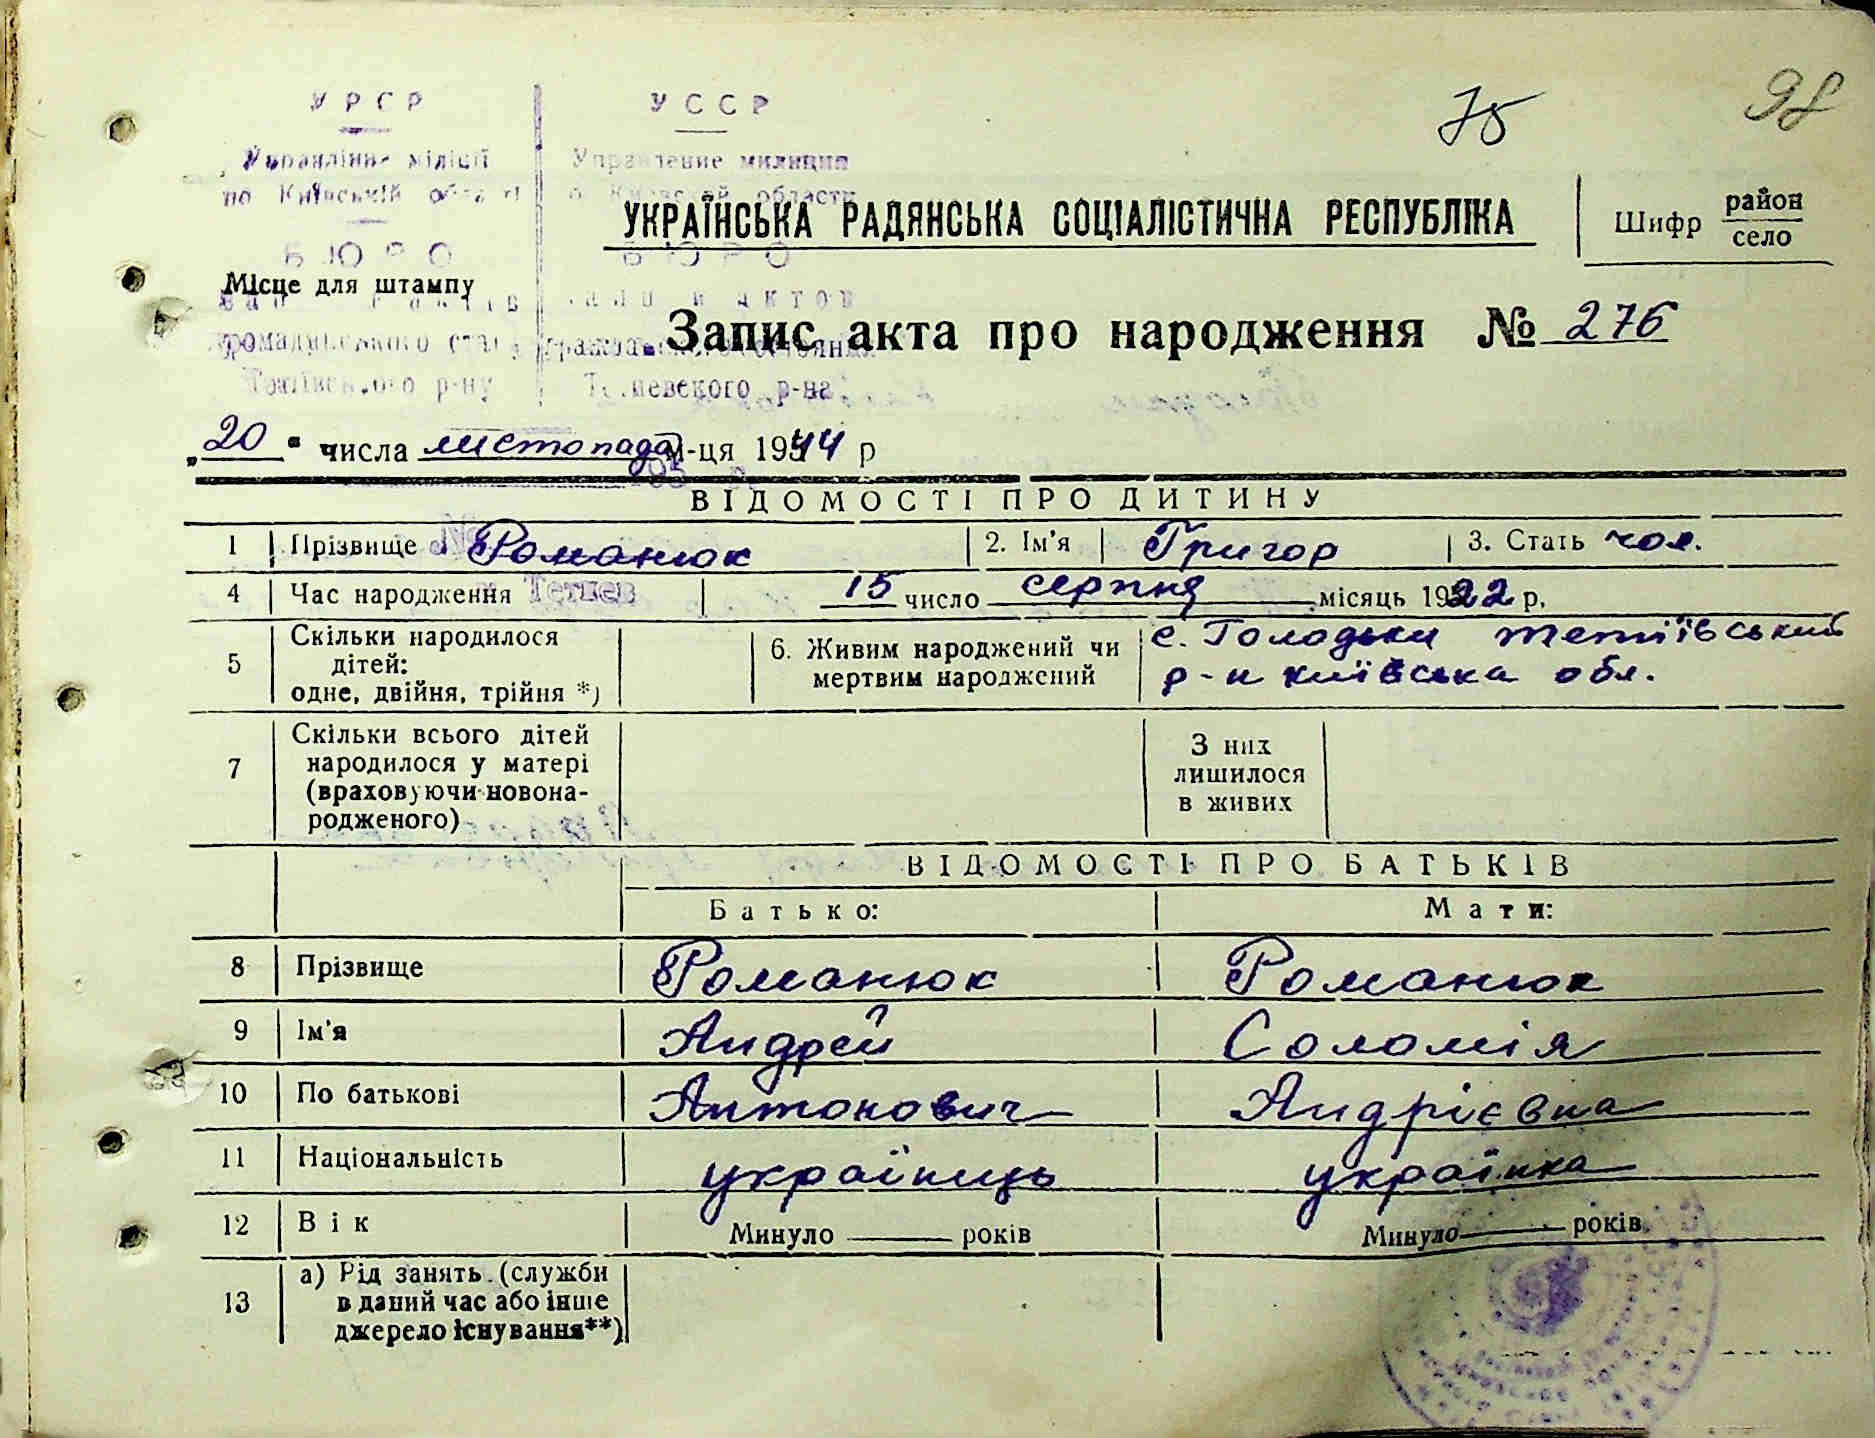 УРСР УССР
75 98
Управління міліції Управление милиции
по Київській області Киевской области
УКРАЇНСЬКА РАДЯНСЬКА СОЦІАЛІСТИЧНА РЕСПУБЛІКА
Шифр район
село
БЮРО БЮРО
Місце для штампу
актів записи актов
громадянського стану гражданского состояния
Запис акта про народження № 276
Тетіївського р-ну Тетиевского р-на
„20" числа листопада м-ця 1944 р
ВІДОМОСТІ ПРО ДИТИНУ
1 Прізвище Романюк 2. Ім'я Григор 3. Стать чол.
4 Час народження 15 число серпня місяць 1922 р.
Тетиев
5 Скільки народилося
дітей:
одне, двійня, трійня *)
6. Живим народжений чи
мертвим народжений
с. Голодьки тетіївський
р-н київська обл.
7 Скільки всього дітей
народилося у матері
(враховуючи новона-
родженого)
З них
лишилося
в живих
ВІДОМОСТІ ПРО БАТЬКІВ
Батько: Мати:
8 Прізвище Романюк Романюк
9 Ім'я Андрей Соломія
10 По батькові Антонович Андрієвна
11 Національність українець українка
12 Вік Минуло років Минуло років
13 а) Рід занять (служби
в даний час або інше
джерело існування**)